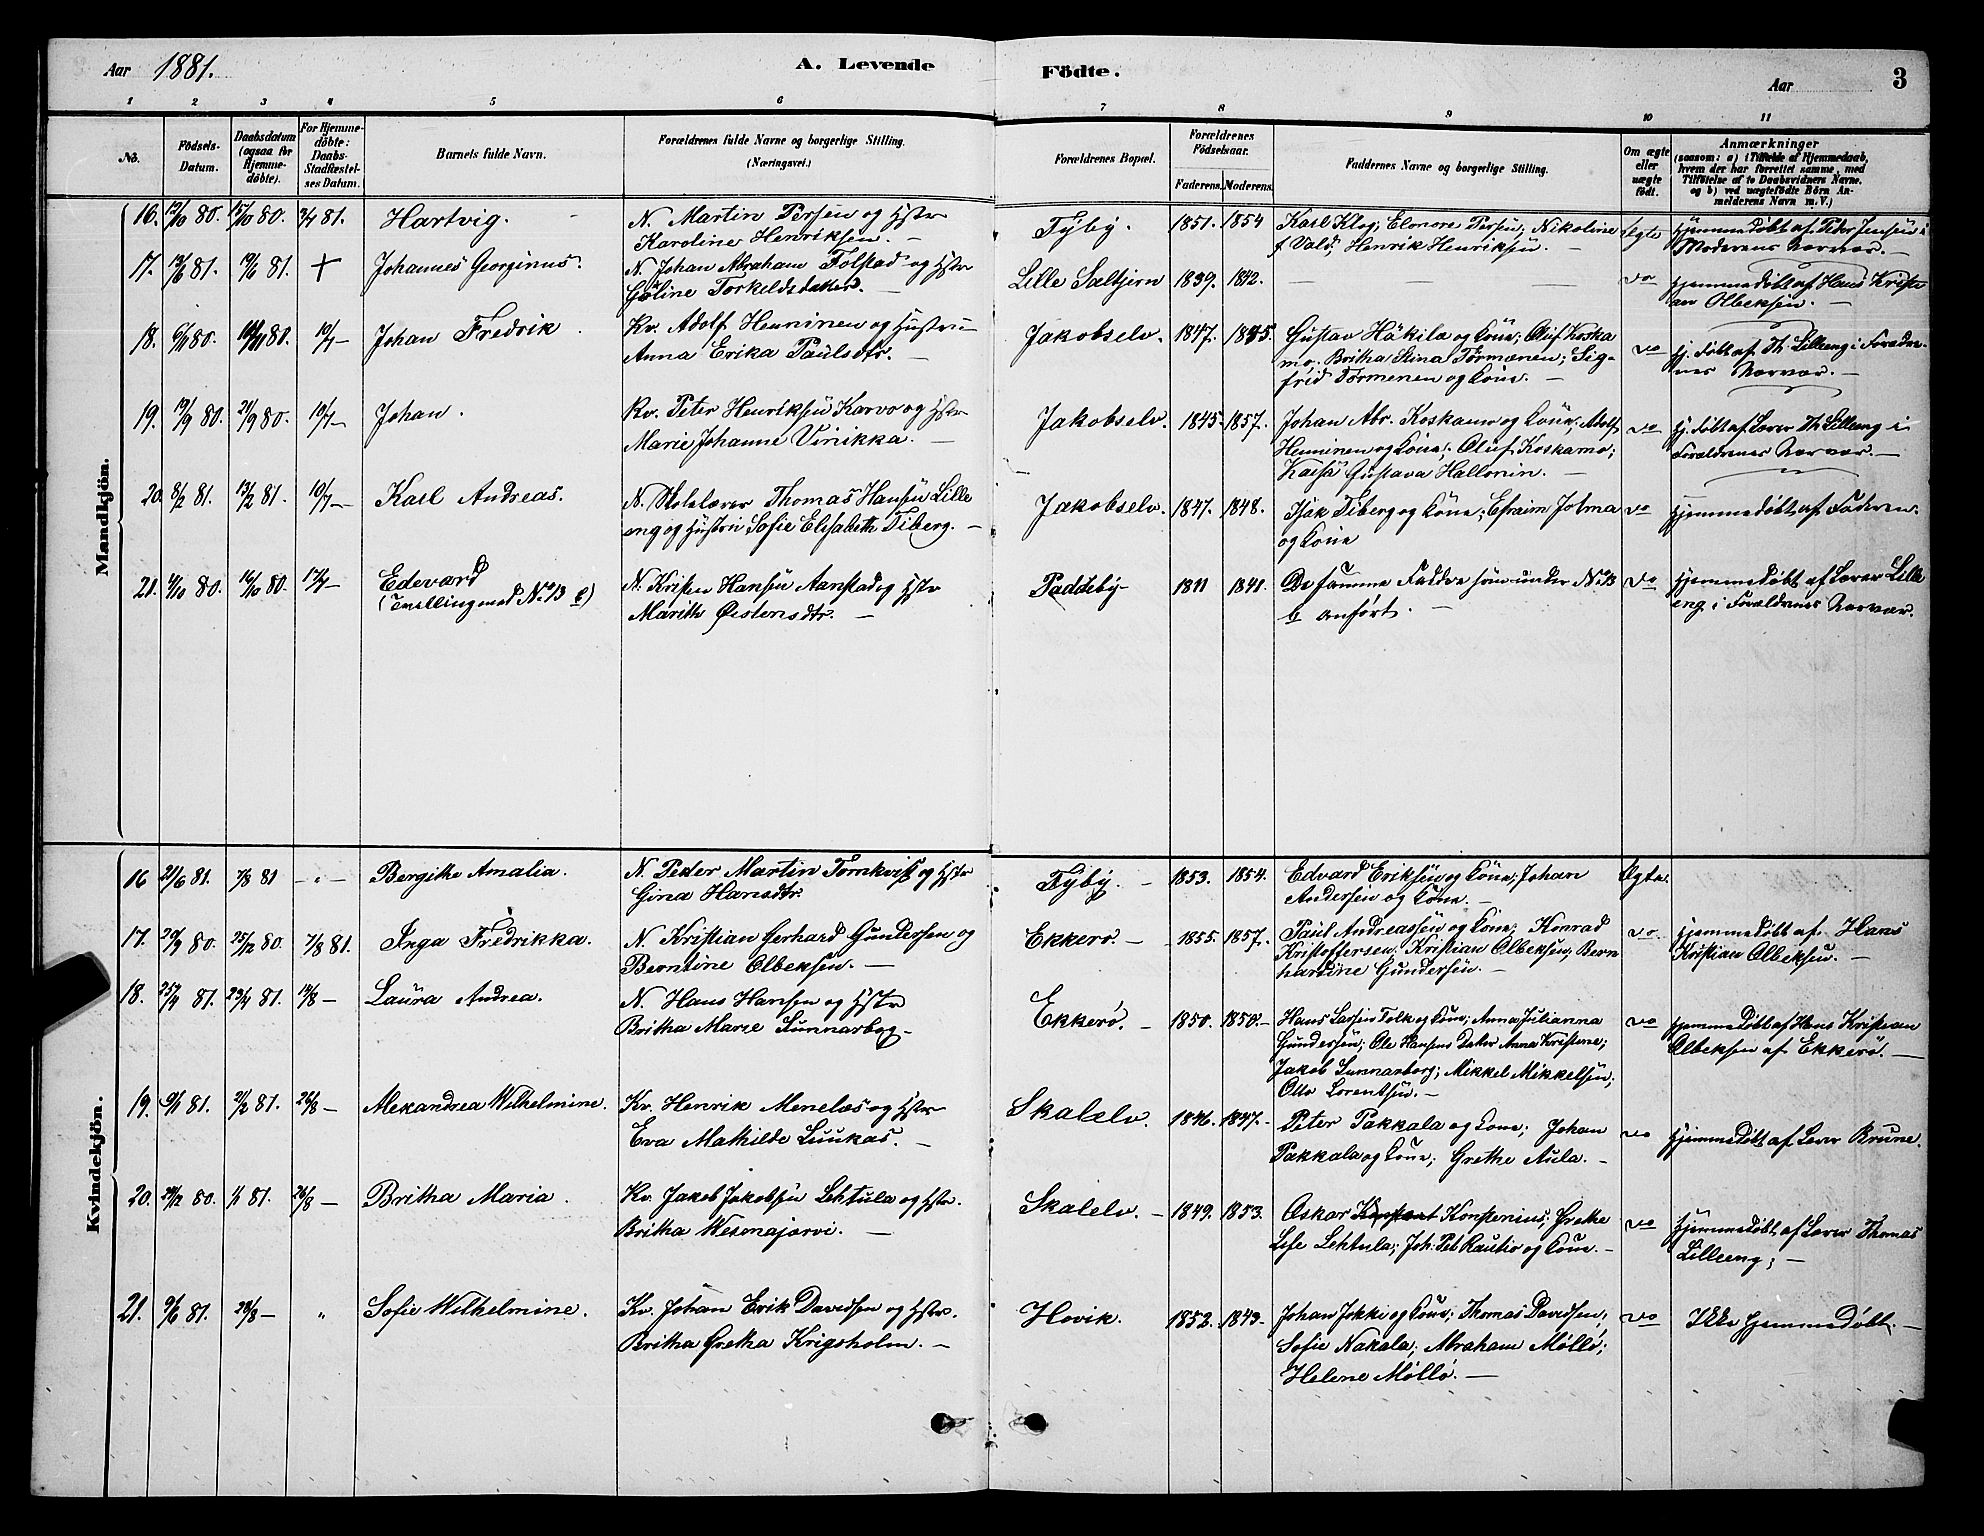 Aar 1881. A. Levende Födte. Aar 3
1 2 3 4 5 6 7 8 9 10 11
No. Födsels-Datum. Daabsdatum (ogsaa for Hjemme-döbte). For Hjemme-döbte: Daabs-Stadfæstel-ses Datum. Barnets fulde Navn. Forældrenes fulde Navne og borgerlige Stilling. (Næringsvei.) Forældrenes Bopæl. Forældrenes Födselsaar. Faderens. Moderens. Faddernes Navne og borgerlige Stilling. Om ægte eller uægte födt. Anmærkninger (saasom: a) i Tilfælde af Hjemmedaab, hvem der har forrettet samme, med Tilföielse af to Daabsvidners Navne, og b) ved uægtefödte Börn An-melderens Navn m. V.)
Mandkjön.
16. 13/10 80. 15/10 80. 3/7 81. Hartvig. N. Martin Persen og Hstr Fyby. 1851. 1854 Karl Klog; Elenore Persen; Nikoline Ægte Hjemmedøbt af Peder Jensen i
Karoline Henriksen. f Vald; Henrik Henriksen. Moderens Nærvær.
17. 13/6 81. 19/6 81. + Johannes Georginus. N. Johan Abraham Tolstad og Hstr Lille Salbjern 1839. 1842. — — — — vo Hjemmedøbt af Hans Kristi
Goline Torkeldsdatter. an Olbeksen.
18. 6/11 80. 14/11 80. 10/7 — Johan Fredrik. Kv. Adolf Heninen og Hustru Jakobselv. 1847. 1835. Gustav Häkila og Kone; Oluf Koska vo Hj. døbt af Th. Lilleeng i Forældre-
Anna Erika Paulsdtr. mo; Britha Stina Törmænen; Sig-frid Törmenen og Kone. nes Nærvær.
19. 19/9 80. 21/9 80. 10/7 — Johan. Kv. Peter Henriksen Karvo og Hstr Jakobselv. 1845. 1857. Johan Abr. Koskamo og Kone; Adolf vo Hj. døbt af Lærer Th Lilleeng i
Marie Johanne Vinikka. Heninen og Kone; Oluf Koskamo; Forældrenes Nærvær.
Kaisa Gustava Hallonin.
20. 8/2 81. 13/2 81. 10/7 — Karl Andreas. N. Skolelærer Thomas Hansen Lille Jakobselv. 1847. 1848. Isak Tiberg og Kone; Efraim Jolma vo Hjemmedøbt af Faderen.
eng og Hustru Sofie Elisabeth Tiberg. og Kone
21. 4/10 80. 16/10 80. 17/7 — Edevard N. Kristen Hansen Aanstad og Hstr Paddeby 1811 1841. De samme Faddre som under No 13 vo Hjemmedøbt af Lærer Lille
(Tvilling med No 13 e) Marith Østensdtr. b anført. eng i Forældrenes Nærvær.
Kvindekjön.
16 21/6 81. 7/8 81 — " — Bergithe Amalia. N. Peder Martin Tornkvist og Hstr Fyby. 1853. 1854. Edvard Eriksen og Kone; Johan Ægte.
Gina Hansdtr. Andersen og Kone.
17. 20/9 80. 25/12 80. 7/8 81. Inga Fredrikka. N. Kristian Gerhard Gundersen og Ekkerø. 1855. 1857. Paul Andreassen og Kone; Konrad vo. Hjemmedøbt af Hans
Berntine Olbeksen. Kristoffersen; Kristian Olbeksen; Bern Kristian Olbeksen.
hardine Gundersen.
18. 25/4 81. 29/4 81. 14/8 — Laura Andrea. N. Hans Hansen og Hstr Ekkerø. 1850. 1850. Hans Larsen Tolk og Kone; Anna Julianna vo Hjemmedøbt af Hans Kristian
Britha Marie Sunnarbog Gundersen; Ole Hansens Datter Anna Kristine; Olbeksen af Ekkerø.
Jakob Sunnarborg; Mikkel Mikkelsen;
Otto Lorentsen.
19. 9/1 81. 2/2 81. 26/8 — Alexandrea Wilhelmine. Kv. Henrik Menelaus og Hstr Skalelv. 1846. 1847. Peter Pakkala og Kone; Johan vo Hjemmedøbt af Lærer Brune
Eva Mathilde Luukas. Pakkala og Kone; Grethe Aula.
20. 29/12 80. 1/1 81. 26/8 — Britha Maria. Kv. Jakob Jakobsen Lehtula og Hstr. Skalelv. 1849. 1853. Oskar Konstant Konstenius; Grethe vo Hjemmedøbt af Lærer Thomas
Britha Wesmajarvi. Life Lehtula; Joh. Pet Rautio og Kone. Lilleeng;
21. 9/6 81. 28/8 — " Sofie Wilhelmine. Kv. Johan Erik Davidsen og Hstr. Hovik. 1852. 1843 Johan Jokki og Kone; Thomas Davidsen; vo Ikke Hjemmedøbt.
Britha Gretha Krigsholm. Sofie Nakala; Abraham Møllø;
Helene Møllø.